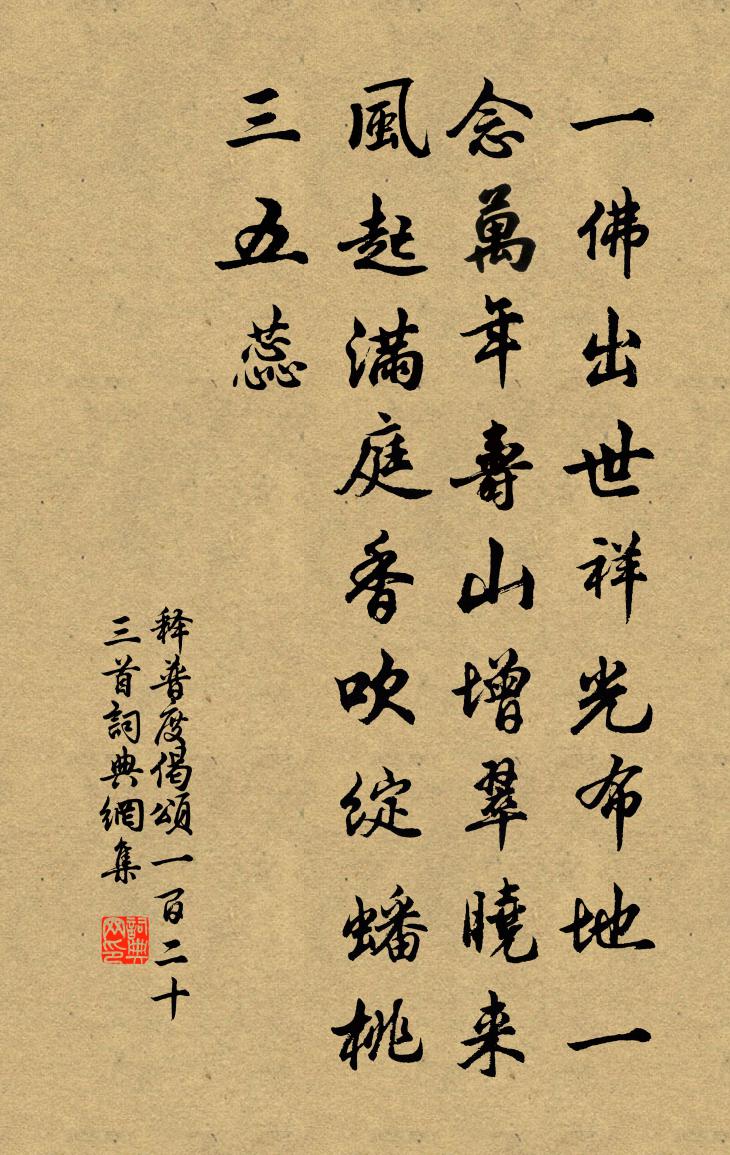 一佛出世祥光布地一
念萬年壽山增翠曉来
風起满庭香吹綻蟠桃
三五蕊
释普度偈頌一百二十
三首詞典網集
詞典网印